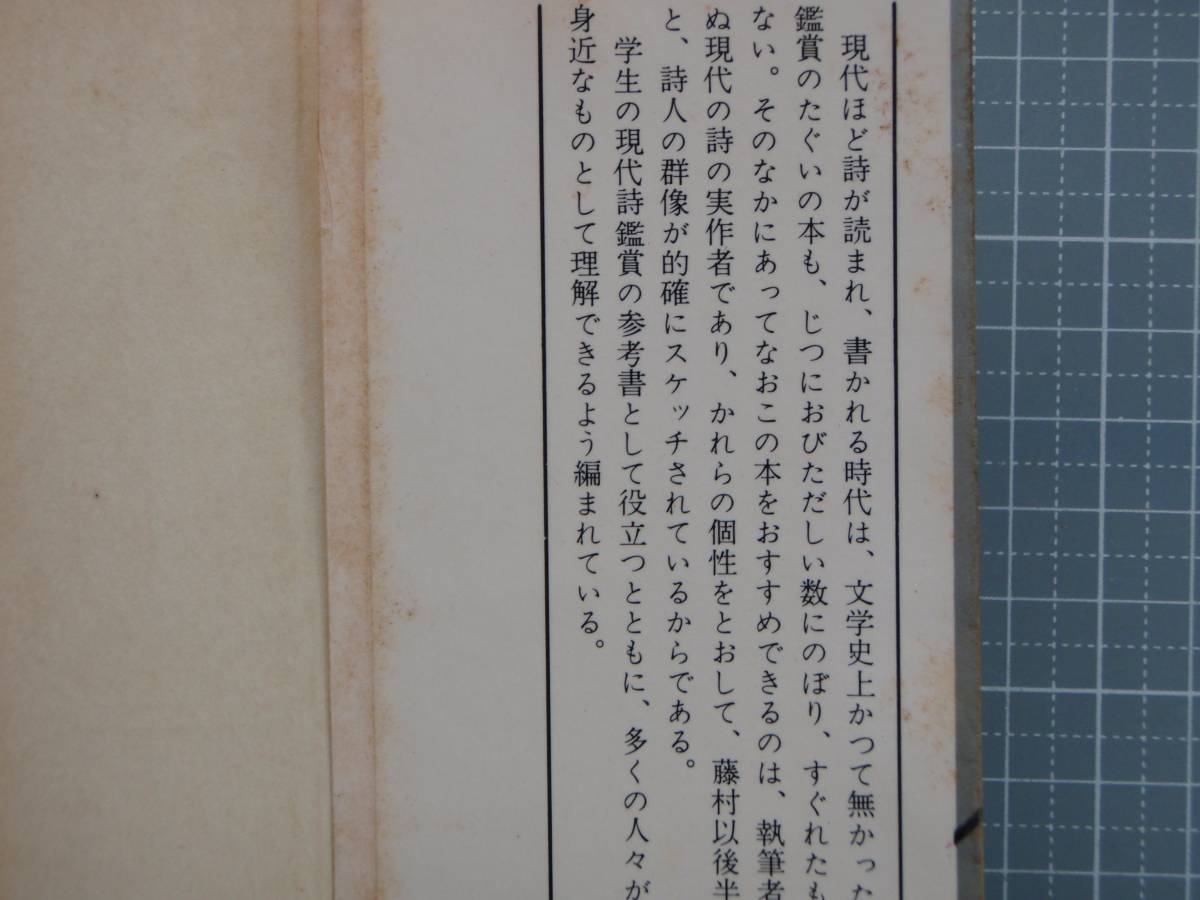 現代ほど詩が読まれ、書かれる時代は、文学史上かつて無かった
鑑賞のたぐいの本も、じつにおびただしい数にのぼり、すぐれたも
ない。そのなかにあってなおこの本をおすすめできるのは、執筆者
ぬ現代の詩の実作者であり、かれらの個性をとおして、藤村以後半
と、詩人の群像が的確にスケッチされているからである。
学生の現代詩鑑賞の参考書として役立つとともに、多くの人々が
身近なものとして理解できるよう編まれている。